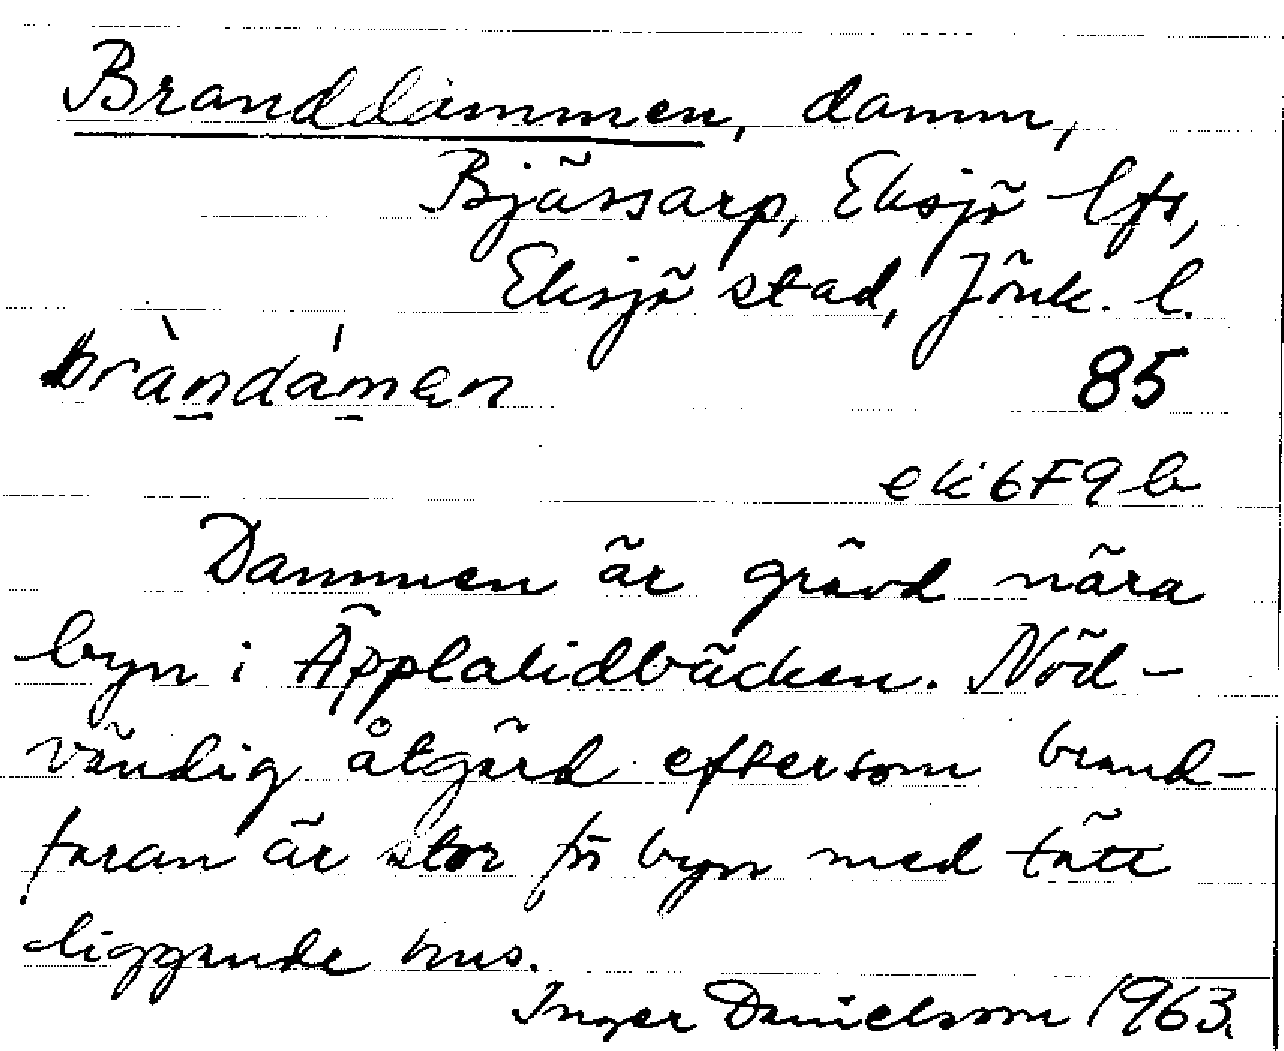 Branddammen, damm,
Bjässarp, Eksjö lfs,
Eksjö stad, Jönk. l.
bràndámen 85
ek 6F9b
Dammen är grävd nära
byn i Äpplalidbäcken. Nöd-
vändig åtgärd eftersom brand-
faran är stor för byn med tätt
liggande hus.
Inger Danielsson 1963.